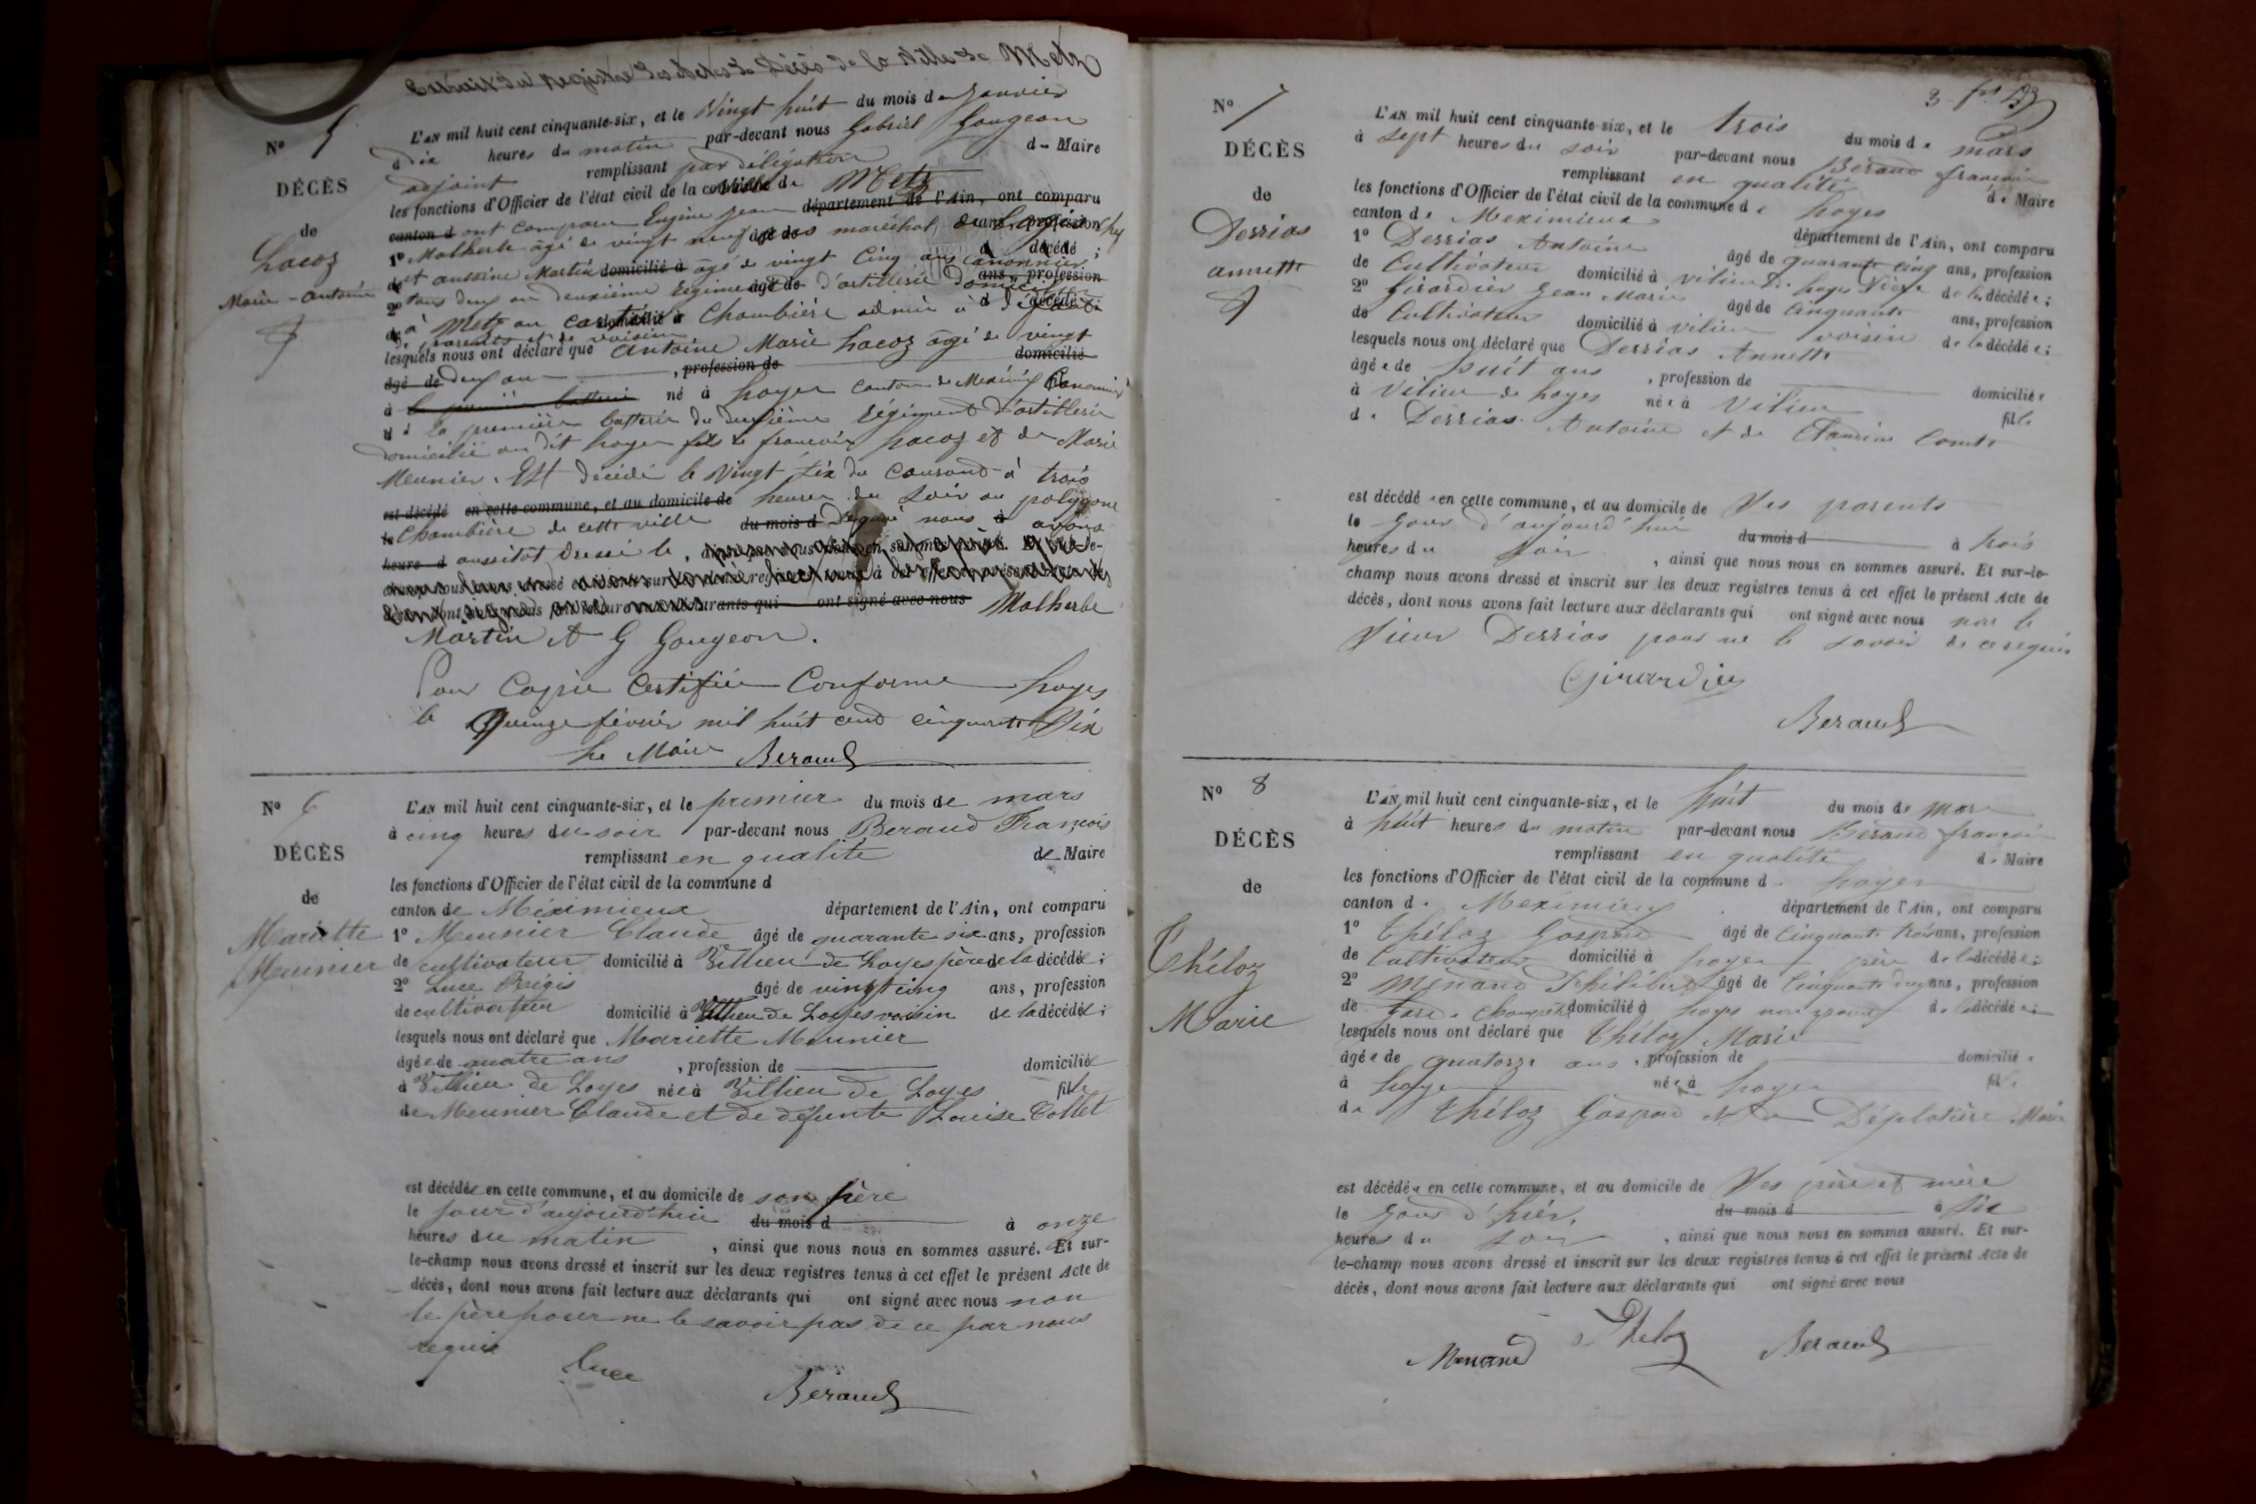 Extrait du Registre des actes de Décès de la Ville de Metz
N° 5
DÉCÈS
de
Lacoz
Marie-antoine
L'AN mil huit cent cinquante-six, et le Vingt huit du mois de Janvier
à dix heures du matin par-devant nous Gabriel Gougeon
adjoint remplissant par délégation de Maire
les fonctions d'Officier de l'état civil de la Ville de Metz
canton d ont comparu Eugène Jean département de l'Ain, ont comparu
1° Malherbe âgé de vingt neuf ans maréchal des logis
et Martin domicilié à âgé de vingt cinq ans canonnier
2° tous deux au deuxième Régiment d'artillerie
à Metz au Chambière à défaut
de parents et de voisins
lesquels nous ont déclaré que Antoine Marie Lacoz âgé de vingt
âgé de deux ans , profession de domicilié
à né à Loyes canton de Meximieux Canonnier
à la première batterie du deuxième Régiment d'artillerie
domicilié au dit Loyes fils de françois Lacoz et de Marie
Meunier. Est décédé le Vingt Six du Courant à trois
est décédé en cette commune, et au domicile de heures du Soir au polygone
Chambière de cette ville du mois d nous avons
heure d aussitôt dressé le
ont signé avec nous Malherbe
Martin et G Gougeon.
Pour Copie Certifiée Conforme Loyes
le Quinze février mil huit cent cinquante Six
Le Maire Beraud
N° 6
DÉCÈS
de
Mariette
Meunier
L'AN mil huit cent cinquante-six, et le premier du mois de mars
à cinq heures du soir par-devant nous Beraud François
remplissant en qualité de Maire
les fonctions d'Officier de l'état civil de la commune d
canton de Méximieux département de l'Ain, ont comparu
1° Meunier Claude âgé de quarante six ans, profession
de cultivateur domicilié à Villieu de Loyes père de la décédée ;
2° Luce Régis âgé de vingt cinq ans, profession
de cultivateur domicilié à Villieu de Loyes voisin de la décédée ;
lesquels nous ont déclaré que Mariette Meunier
âgée de quatre ans , profession de domiciliée
à Villieu de Loyes née à Villieu de Loyes fille
de Meunier Claude et de défunte Louise Collet
est décédée en cette commune, et au domicile de son père
le jour d'aujourd'hui du mois d à onze
heures du matin , ainsi que nous nous en sommes assuré. Et sur-
le-champ nous avons dressé et inscrit sur les deux registres tenus à cet effet le présent Acte de
décès, dont nous avons fait lecture aux déclarants qui ont signé avec nous non
le père pour ne le savoir pas de ce par nous
requis
Luce
Beraud
3
N° 7
DÉCÈS
de
Derrias
annette
L'AN mil huit cent cinquante-six, et le trois du mois de mars
à sept heures du soir par-devant nous Béraud françois
remplissant en qualité de Maire
les fonctions d'Officier de l'état civil de la commune de Loyes
canton de Meximieux département de l'Ain, ont comparu
1° Derrias Antoine âgé de quarante cinq ans, profession
de Cultivateur domicilié à Vilieu de Loyes Père de la décédée ;
2° Girardier Jean Marie âgé de Cinquante ans, profession
de Cultivateur domicilié à Vilieu voisin de la décédée ;
lesquels nous ont déclaré que Derrias Annette
âgée de huit ans , profession de domiciliée
à Vilieu de Loyes née à Vilieu fille
de Derrias Antoine et de Claudine Comte
est décédée en cette commune, et au domicile de Ses parents
le Jour d'aujourd'hui du mois d à trois
heures du Soir , ainsi que nous nous en sommes assuré. Et sur-le-
champ nous avons dressé et inscrit sur les deux registres tenus à cet effet le présent Acte de
décès, dont nous avons fait lecture aux déclarants qui ont signé avec nous non le
Sieur Derrias pour ne le savoir de ce requis
Girardier
Beraud
N° 8
DÉCÈS
de
Théloz
Marie
L'AN mil huit cent cinquante-six, et le huit du mois de mars
à huit heures du matin par-devant nous Béraud françois
remplissant en qualité de Maire
les fonctions d'Officier de l'état civil de la commune d Loyes
canton de Meximieux département de l'Ain, ont comparu
1° Théloz Gaspard âgé de Cinquante trois ans, profession
de Cultivateur domicilié à Loyes père de la décédée ;
2° Menand Philibert âgé de Cinquante deux ans, profession
de Garde Champêtre domicilié à Loyes non parent de la décédée ;
lesquels nous ont déclaré que Théloz Marie
âgée de quatorze ans , profession de domiciliée
à Loyes née à Loyes fille
de Théloz Gaspard et de Déplatière Marie
est décédée en cette commune, et au domicile de Ses père et mère
le Jour d'hier, du mois d à Six
heures du Soir , ainsi que nous nous en sommes assuré. Et sur-
le-champ nous avons dressé et inscrit sur les deux registres tenus à cet effet le présent Acte de
décès, dont nous avons fait lecture aux déclarants qui ont signé avec nous
Menand Theloz Beraud